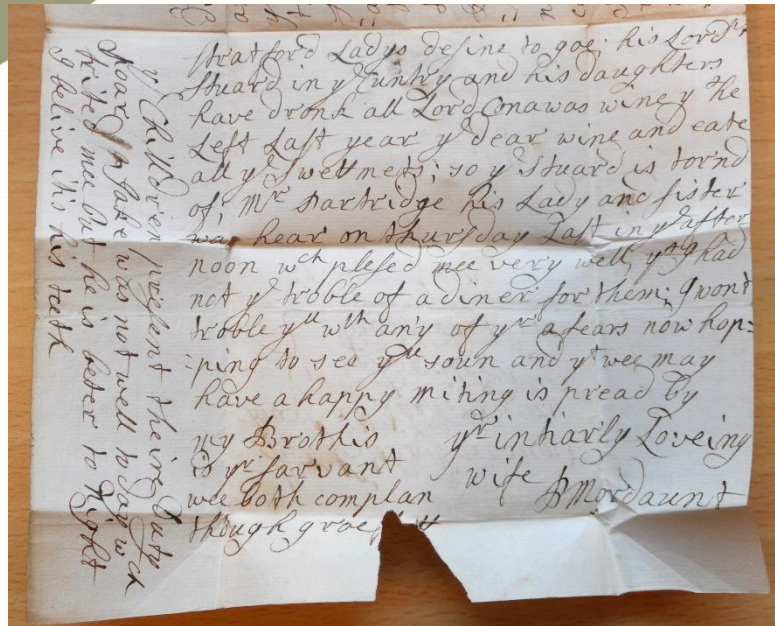 stratford Ladys desine to goe; his Lordps
stuard in ye Cuntry and his daughters
have dronk all Lord Conawas wine yt he
Left Last year ye dear wine and eate
all ye swettmets; so ye stuard is tornd
of; Mr Partridge his Lady and sister
was hear on thursday Last in ye after
noon wch plesed mee very well yt I had
not ye troble of a diner for them; I wont
troble you wth any of yr afears now hop=
ping to see you soun and yt wee may
have a happy miting is pread by
my Brothis
is yr sarvant
wee both complan
though
yr intiarly Loveing
wife
PMordaunt
ye Children present theire duty
poar Jake was not well to day wch
frited mee but he is beter to Night
I belive it is his teth